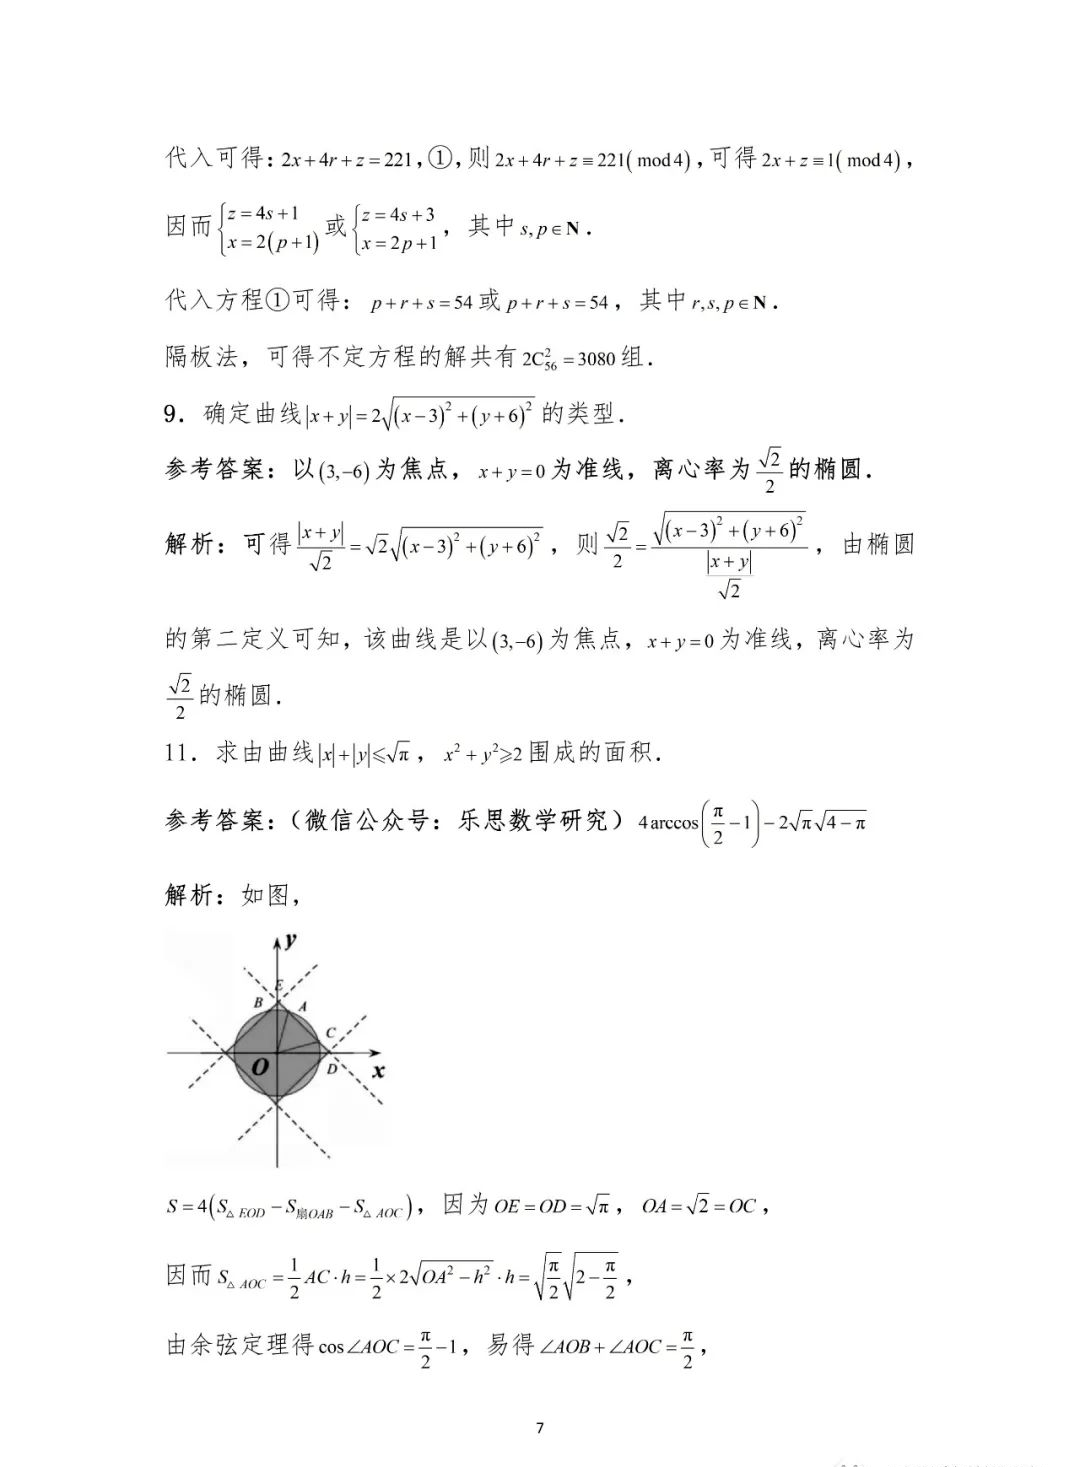 代入可得：2x+4r+z=221，①，则2x+4r+z≡221(mod4)，可得2x+z≡1(mod4)，
因而{z=4s+1 x=2(p+1)或{z=4s+3 x=2p+1，其中s,p∈N．
代入方程①可得：p+r+s=54或p+r+s=54，其中r,s,p∈N．
隔板法，可得不定方程的解共有2C²₅₆=3080组．
9．确定曲线|x+y|=2√((x−3)²+(y+6)²)的类型．
参考答案：以(3,−6)为焦点，x+y=0为准线，离心率为√2/2的椭圆．
解析：可得|x+y|/√2=√2√((x−3)²+(y+6)²)，则√2/2=√((x−3)²+(y+6)²)/(|x+y|/√2)，由椭圆
的第二定义可知，该曲线是以(3,−6)为焦点，x+y=0为准线，离心率为
√2/2的椭圆．
11．求由曲线|x|+|y|⩽√π，x²+y²⩾2围成的面积．
参考答案：（微信公众号：乐思数学研究）4arccos(π/2−1)−2√π√(4−π)
解析：如图，
y
E
B
A
C
O
D
x
S=4(S△EOD−S扇OAB−S△AOC)，因为OE=OD=√π，OA=√2=OC，
因而S△AOC=1/2AC·h=1/2×2√(OA²−h²)·h=√(π/2)√(2−π/2)，
由余弦定理得cos∠AOC=π/2−1，易得∠AOB+∠AOC=π/2，
7